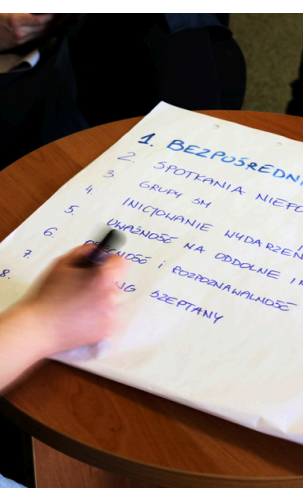 1. BEZPOŚREDNI
2. SPOTKANIA NIEFO
3. GRUPY SM
4. INICJOWANIE WYDARZEŃ
5. UWAŻNOŚĆ NA ODDOLNE
6. I ROZPOZNAWALNOŚĆ
7. NG SZEPTANY
8.